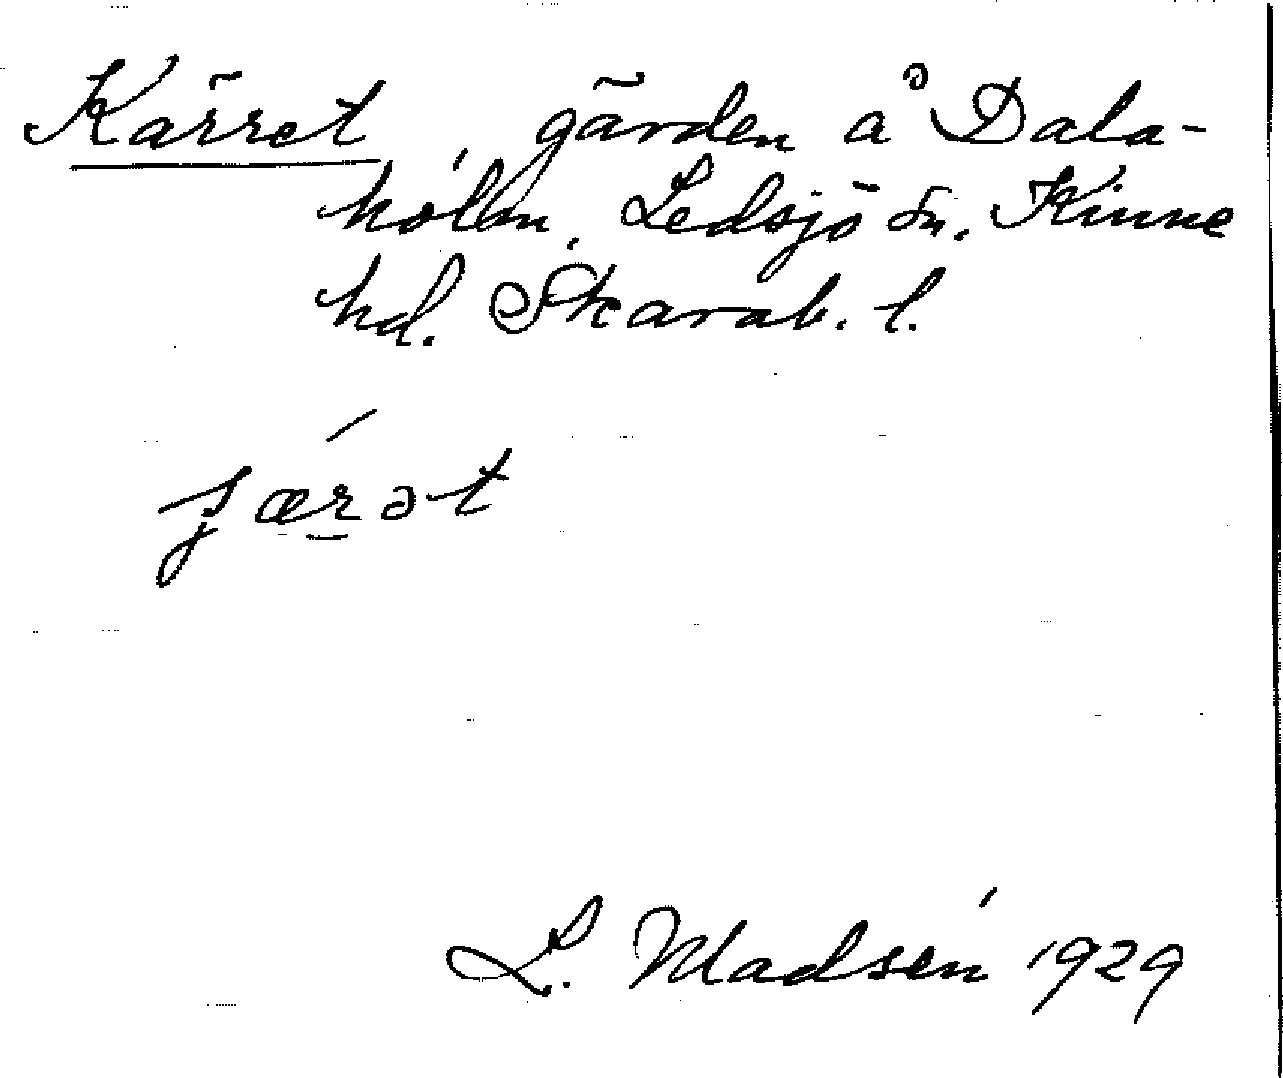 Kärret, gärden å Dala-
holm, Ledsjö sn. Kinne
hd. Skarab. l.
L. Madsén 1929